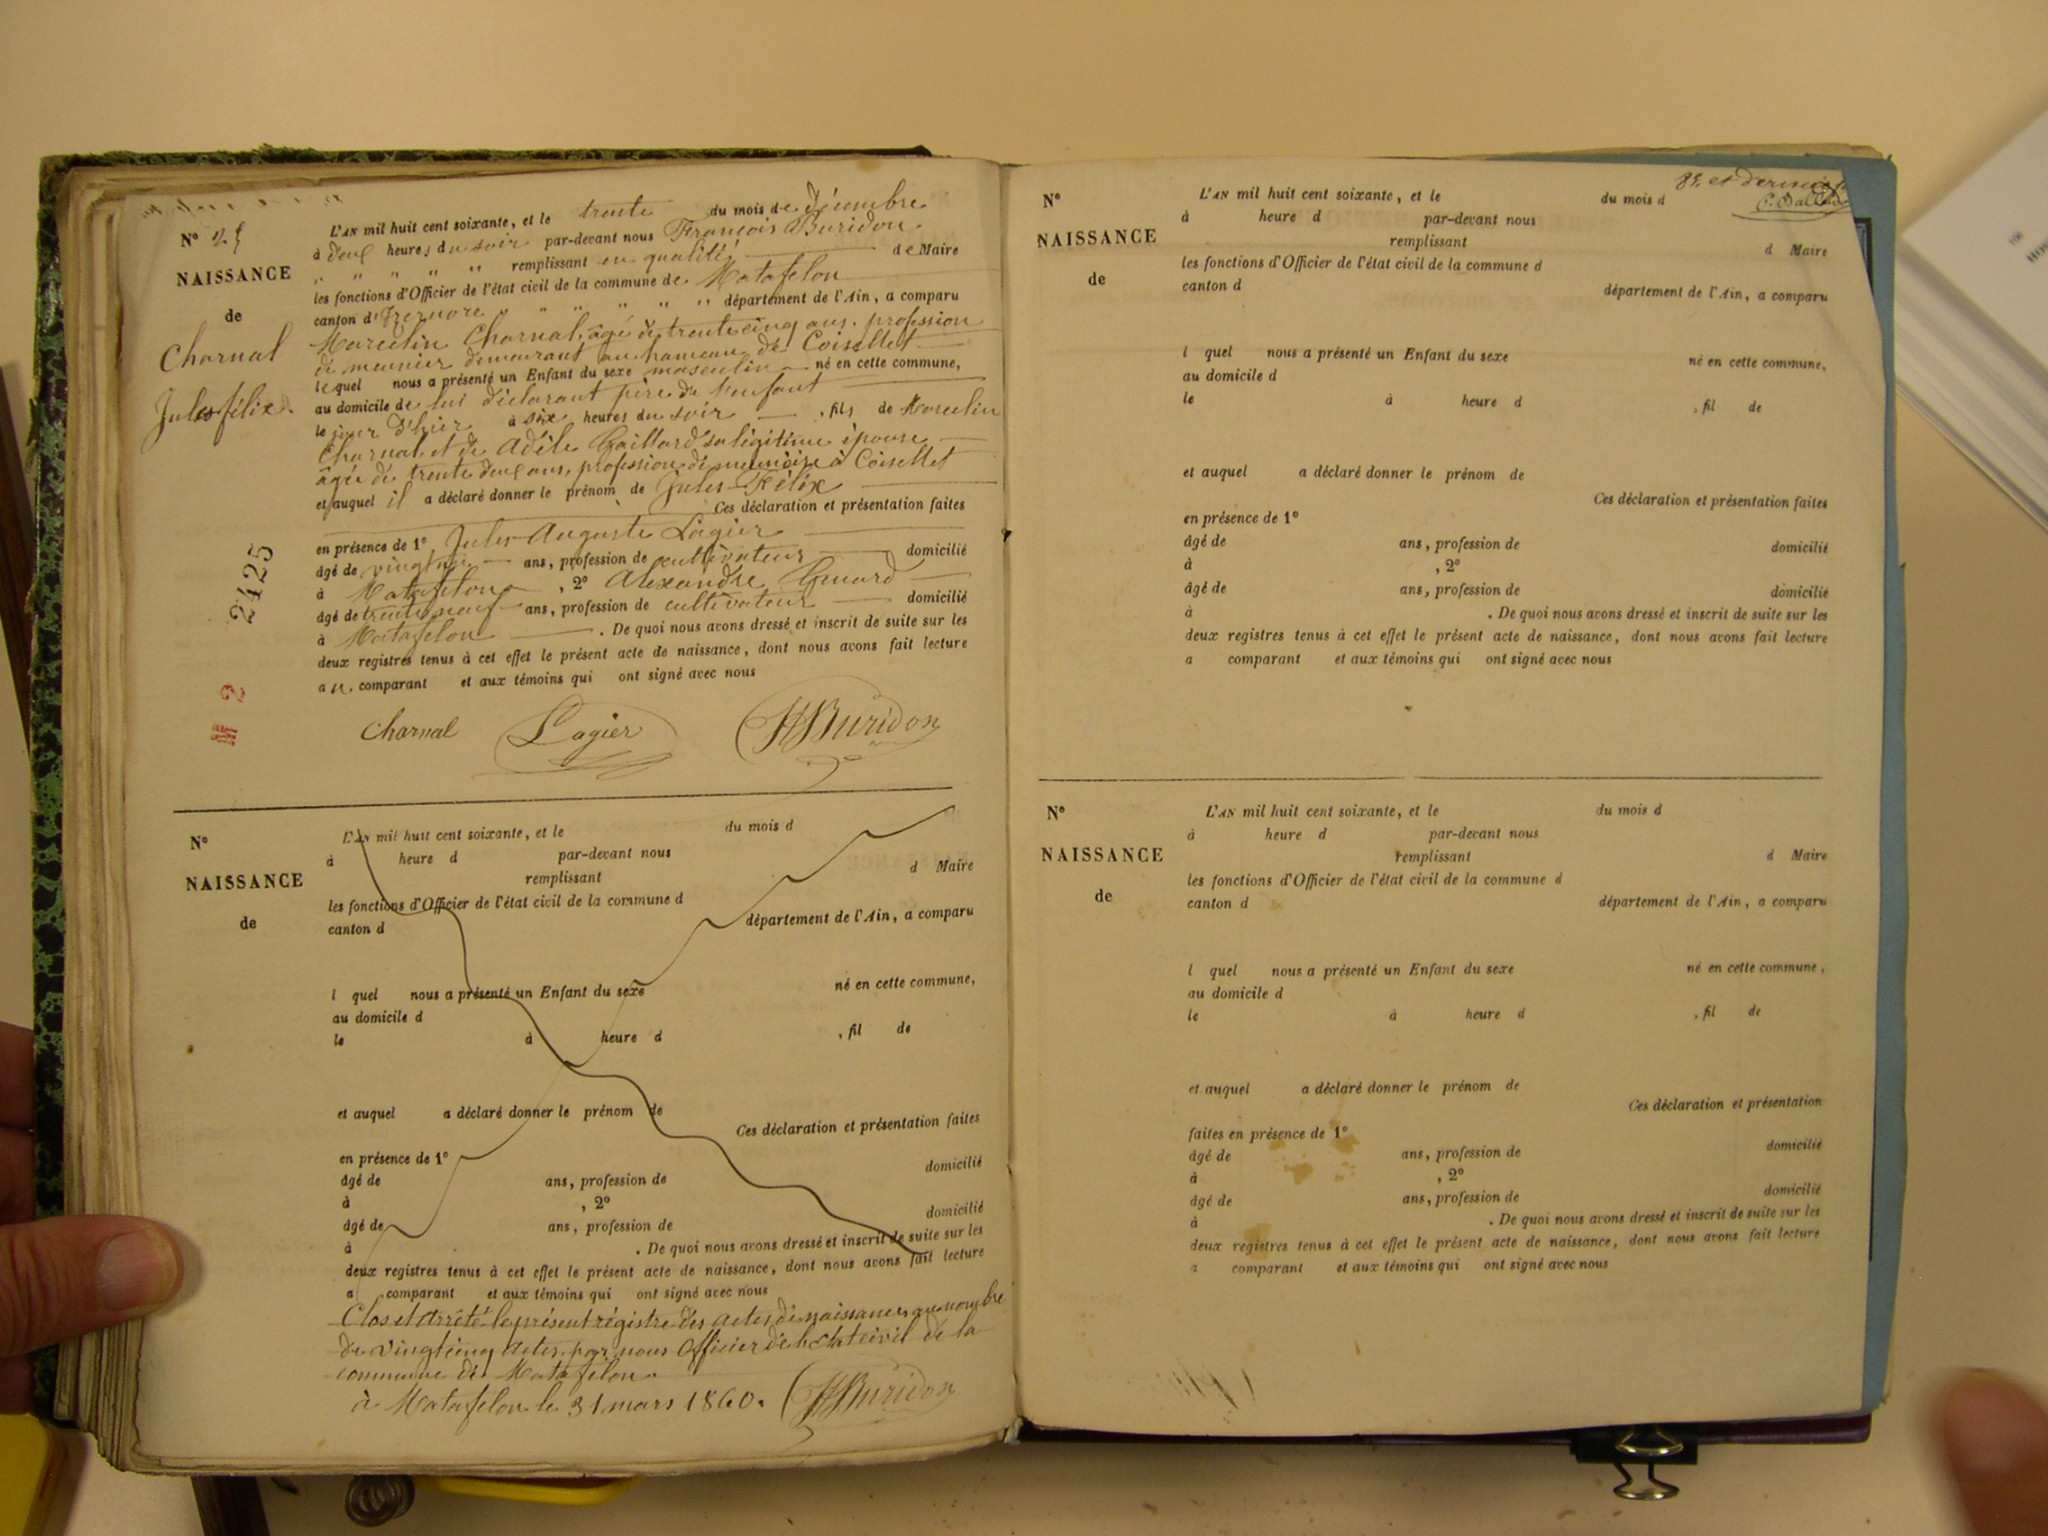 N° 25
NAISSANCE
de
Charnal
Jules félix
L'AN mil huit cent soixante, et le trente du mois de décembre
à deux heures du soir par-devant nous François Buridon
remplissant en qualité de Maire
les fonctions d'Officier de l'état civil de la commune de Matafelon
canton d'Izernore département de l'Ain, a comparu
Marcelin Charnal, âgé de trente cinq ans, profession
de meunier demeurant au hameau de Coisellet
lequel nous a présenté un Enfant du sexe masculin né en cette commune,
au domicile de lui déclarant père de l'enfant
le jour d'hier à six heures du soir, fils de Marcelin
Charnal et de Adèle Gaillard sa légitime épouse
âgée de trente deux ans, profession de meunière à Coisellet
et auquel il a déclaré donner le prénom de Jules-Félix
Ces déclaration et présentation faites
en présence de 1° Jules Auguste Lagier
âgé de vingt un ans, profession de cultivateur domicilié
à Matafelon, 2° Alexandre
âgé de trente neuf ans, profession de cultivateur domicilié
à Matafelon. De quoi nous avons dressé et inscrit de suite sur les
deux registres tenus à cet effet le présent acte de naissance, dont nous avons fait lecture
au comparant et aux témoins qui ont signé avec nous
2425
Charnal Lagier Buridon
N°
NAISSANCE
de
L'AN mil huit cent soixante, et le du mois d
à heure d par-devant nous
remplissant d Maire
les fonctions d'Officier de l'état civil de la commune d
canton d département de l'Ain, a comparu
l quel nous a présenté un Enfant du sexe né en cette commune,
au domicile d
le à heure d , fil de
et auquel a déclaré donner le prénom de
Ces déclaration et présentation faites
en présence de 1°
âgé de ans, profession de domicilié
à , 2°
âgé de ans, profession de domicilié
à . De quoi nous avons dressé et inscrit de suite sur les
deux registres tenus à cet effet le présent acte de naissance, dont nous avons fait lecture
a comparant et aux témoins qui ont signé avec nous
Clos et arrêté le présent régistre des actes de naissances au nombre
de vingt cinq actes, par nous Officier de l'état civil de la
commune de Matafelon.
à Matafelon le 31 mars 1860. Buridon
et dernier
N°
NAISSANCE
de
L'AN mil huit cent soixante, et le du mois d
à heure d par-devant nous
remplissant d Maire
les fonctions d'Officier de l'état civil de la commune d
canton d département de l'Ain, a comparu
l quel nous a présenté un Enfant du sexe né en cette commune,
au domicile d
le à heure d , fil de
et auquel a déclaré donner le prénom de
Ces déclaration et présentation faites
en présence de 1°
âgé de ans, profession de domicilié
à , 2°
âgé de ans, profession de domicilié
à . De quoi nous avons dressé et inscrit de suite sur les
deux registres tenus à cet effet le présent acte de naissance, dont nous avons fait lecture
a comparant et aux témoins qui ont signé avec nous
N°
NAISSANCE
de
L'AN mil huit cent soixante, et le du mois d
à heure d par-devant nous
remplissant d Maire
les fonctions d'Officier de l'état civil de la commune d
canton d département de l'Ain, a comparu
l quel nous a présenté un Enfant du sexe né en cette commune,
au domicile d
le à heure d , fil de
et auquel a déclaré donner le prénom de
Ces déclaration et présentation
faites en présence de 1°
âgé de ans, profession de domicilié
à , 2°
âgé de ans, profession de domicilié
à . De quoi nous avons dressé et inscrit de suite sur les
deux registres tenus à cet effet le présent acte de naissance, dont nous avons fait lecture
a comparant et aux témoins qui ont signé avec nous